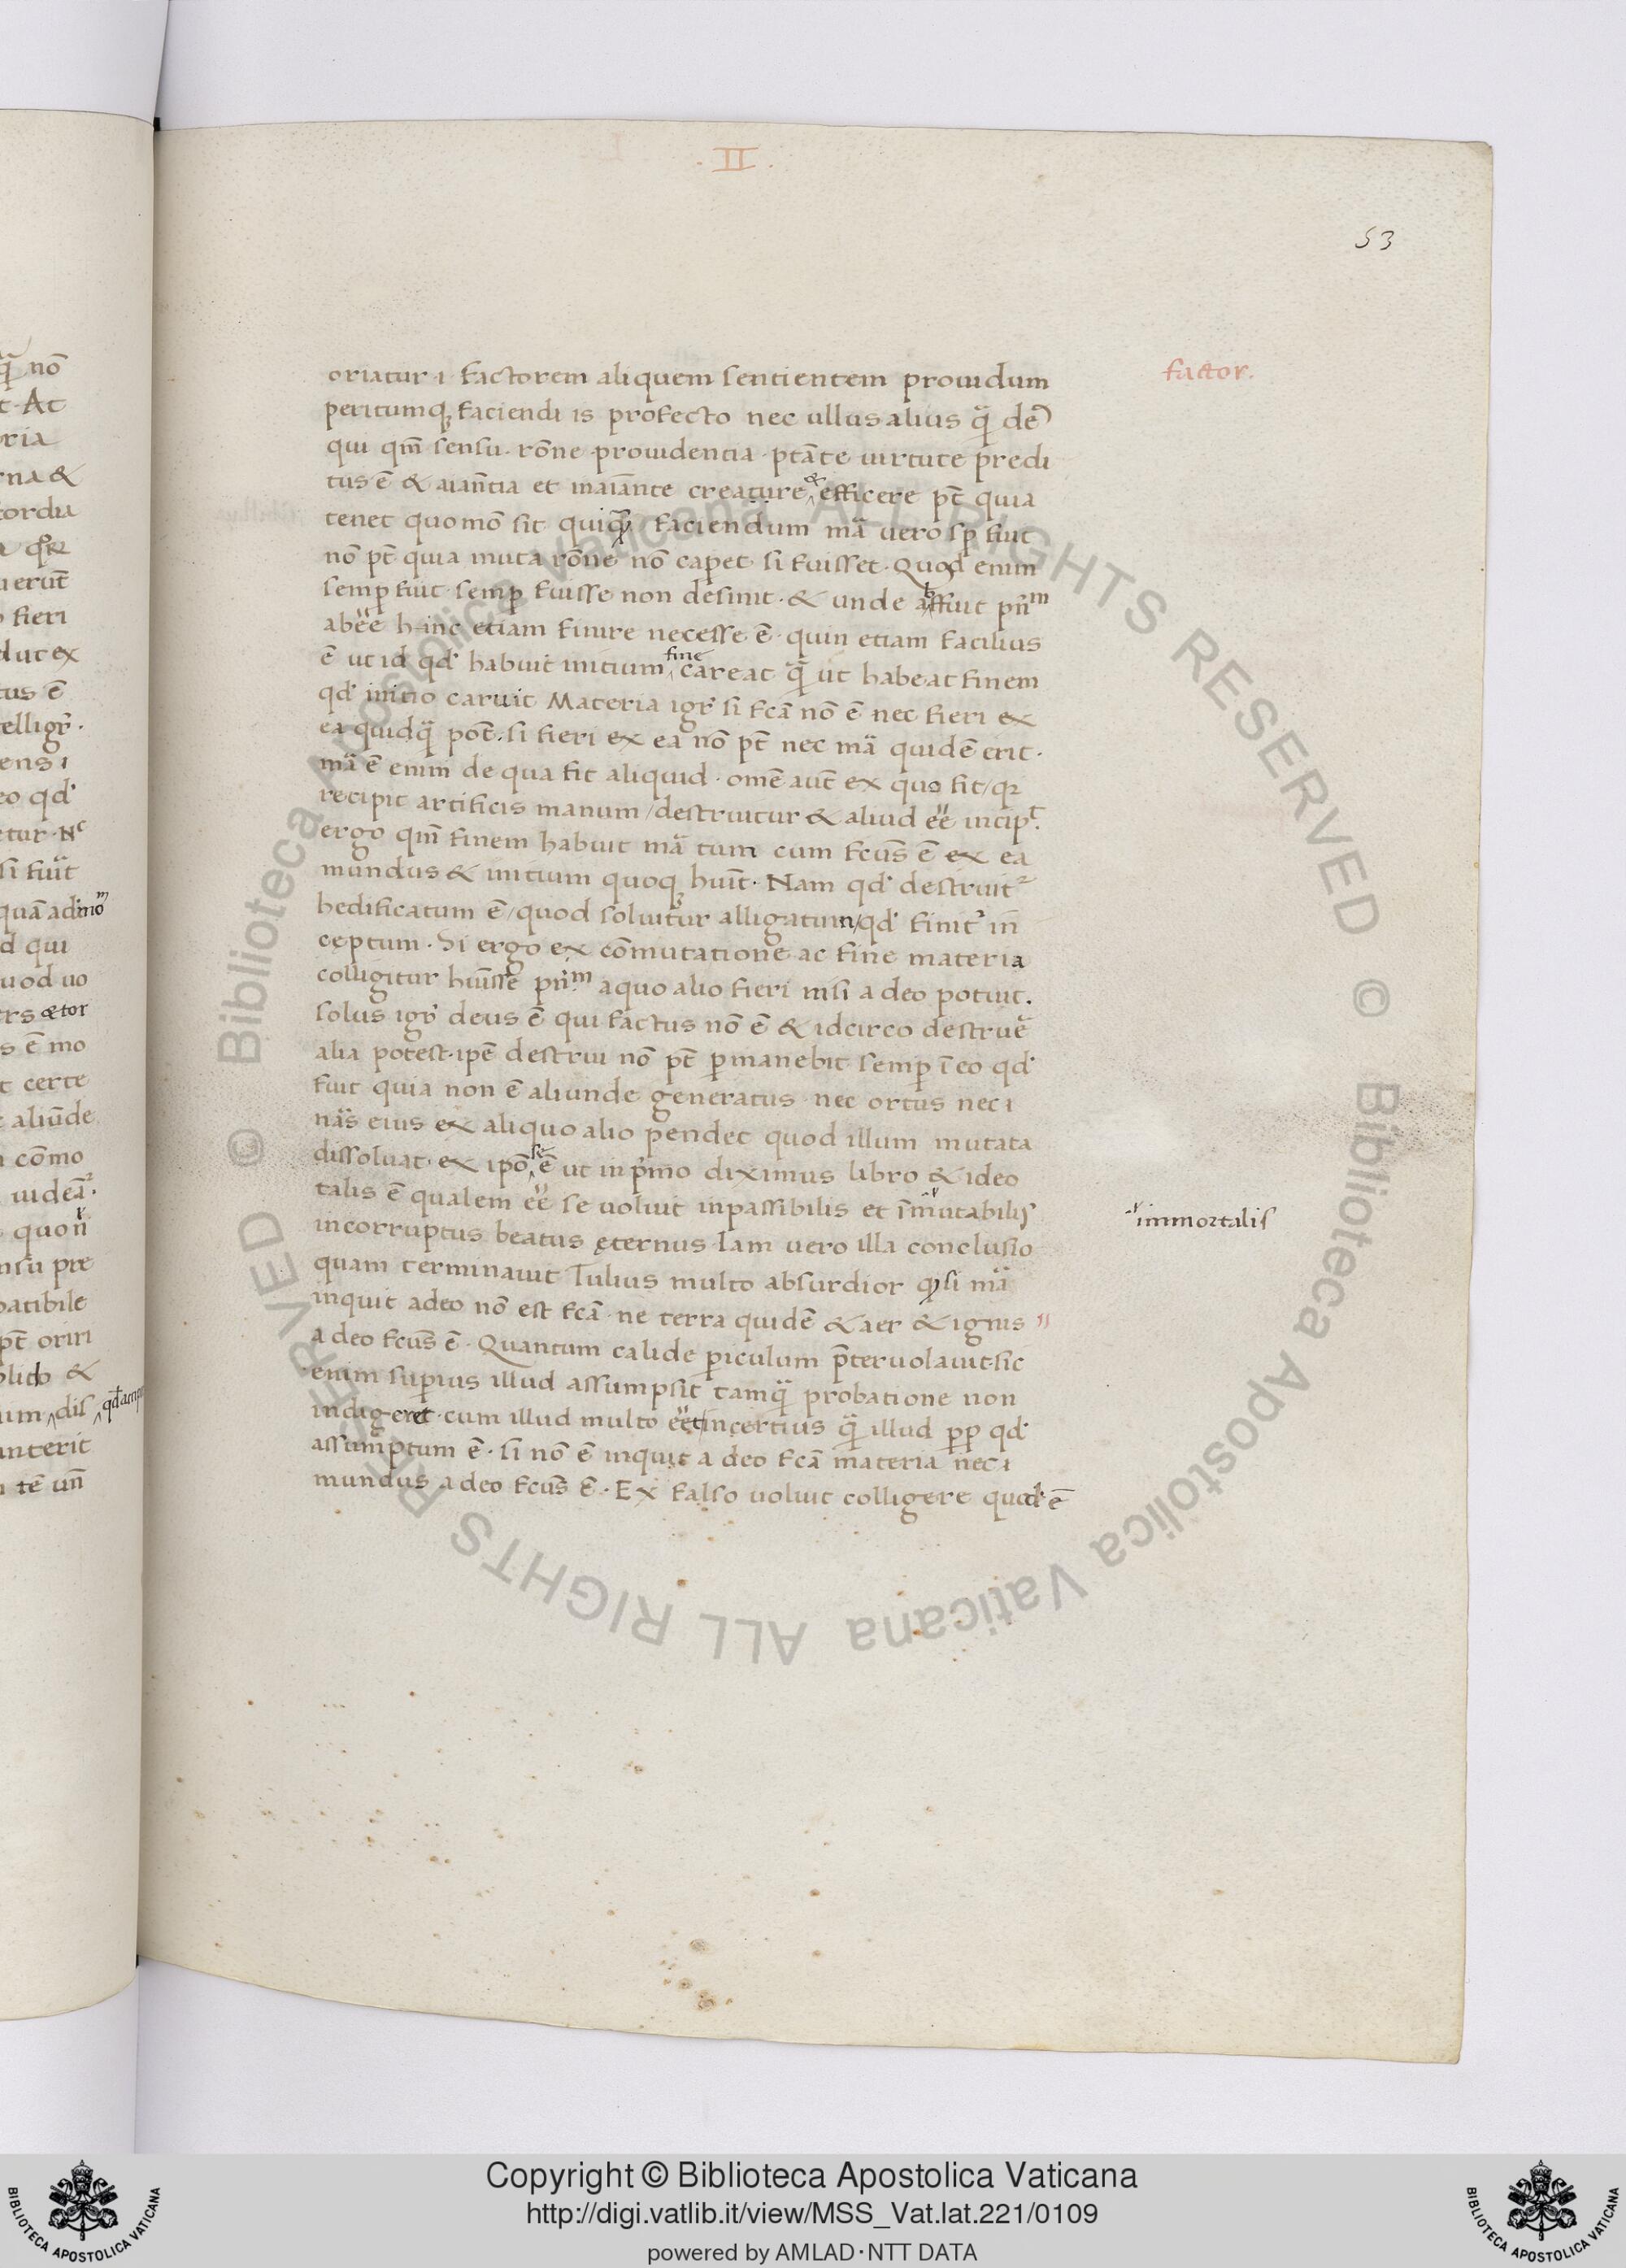 · II ·
53
oriatur ı factorem aliquem sentientem prouidum
factor.
peritumq; faciendi is profecto nec ullus alius q̃ de
qui qm̄ sensu. rōne prouidentia ptāte uirtute predi
tus ē & aıant̄ia et inaīante creature & efficere pt̄ quia
tenet quomō sit faciendum mā uero sp̄ fuit
nō pt̄ quia muta rōne nō capet si fuisset. Quod enim
semp̱ fuit semp̱ fuisse non desinit. & unde affuit pn̄m
abēē hinc etiam finire necesse ē quin etiam facilius
ē ut id qd' habuit initium fine careat q̃ ut habeat finem
qd' initio caruit Materia igr̄ si fcā nō ē nec fieri ex
ea quidq̃ pōt. si fieri ex ea nō pt̄ nec mā quidē erit.
mā ē enim de qua fit aliquid. omē aūt ex quo fit/ qꝛ
recipit artificis manum/ destruitur & aliud ēē incip̄t.
ergo qm̄ finem habuit mā tum cum fcūs ē ex ea
mundus & initium quoq; huīt. Nam qd' destruit'
hedificatum ē/ quod soluitur alligatum/ qd' finit' in
ceptum. Si ergo ex cōmutatione ac fine materia
colligitur huīsse pn̄m aquo alio fieri nisi a deo potuit.
solus igr̄ deus ē qui factus nō ē & idcirco destruē
alia potest. ipē destrui nō pt̄ p̱manebit semp̱ ī eo qd'
fuit quia non ē aliunde generatus nec ortus nec ı
nās eius ex aliquo alio pendet quod illum mutata
dissoluat. ex ipō se ē ut in p̄mo diximus libro & ideo
talis ē qualem ēē se uoluit inpassibilis et īmutabilis
immortalis
incorruptus beatus ęternus. Iam uero illa conclusio
quam terminauit Tulius multo absurdior ꝙ si mā
inquit adeo nō est fcā ne terra quidē & aer & ignis
a deo fcūs ē. Quantum calide p̱iculum p̄teruolauit sic
enim sup̱ius illud assumpsit tamq̃ probatione non
indigeret cum illud multo ēēt incertius q̃ illud pp̱ qd'
assumptum ē. si nō ē inquit a deo fcā materia nec ı
mundus a deo fcūs ē. Ex falso uoluit colligere quod ē
Copyright © Biblioteca Apostolica Vaticana
http://digi.vatlib.it/view/MSS_Vat.lat.221/0109
powered by AMLAD·NTT DATA